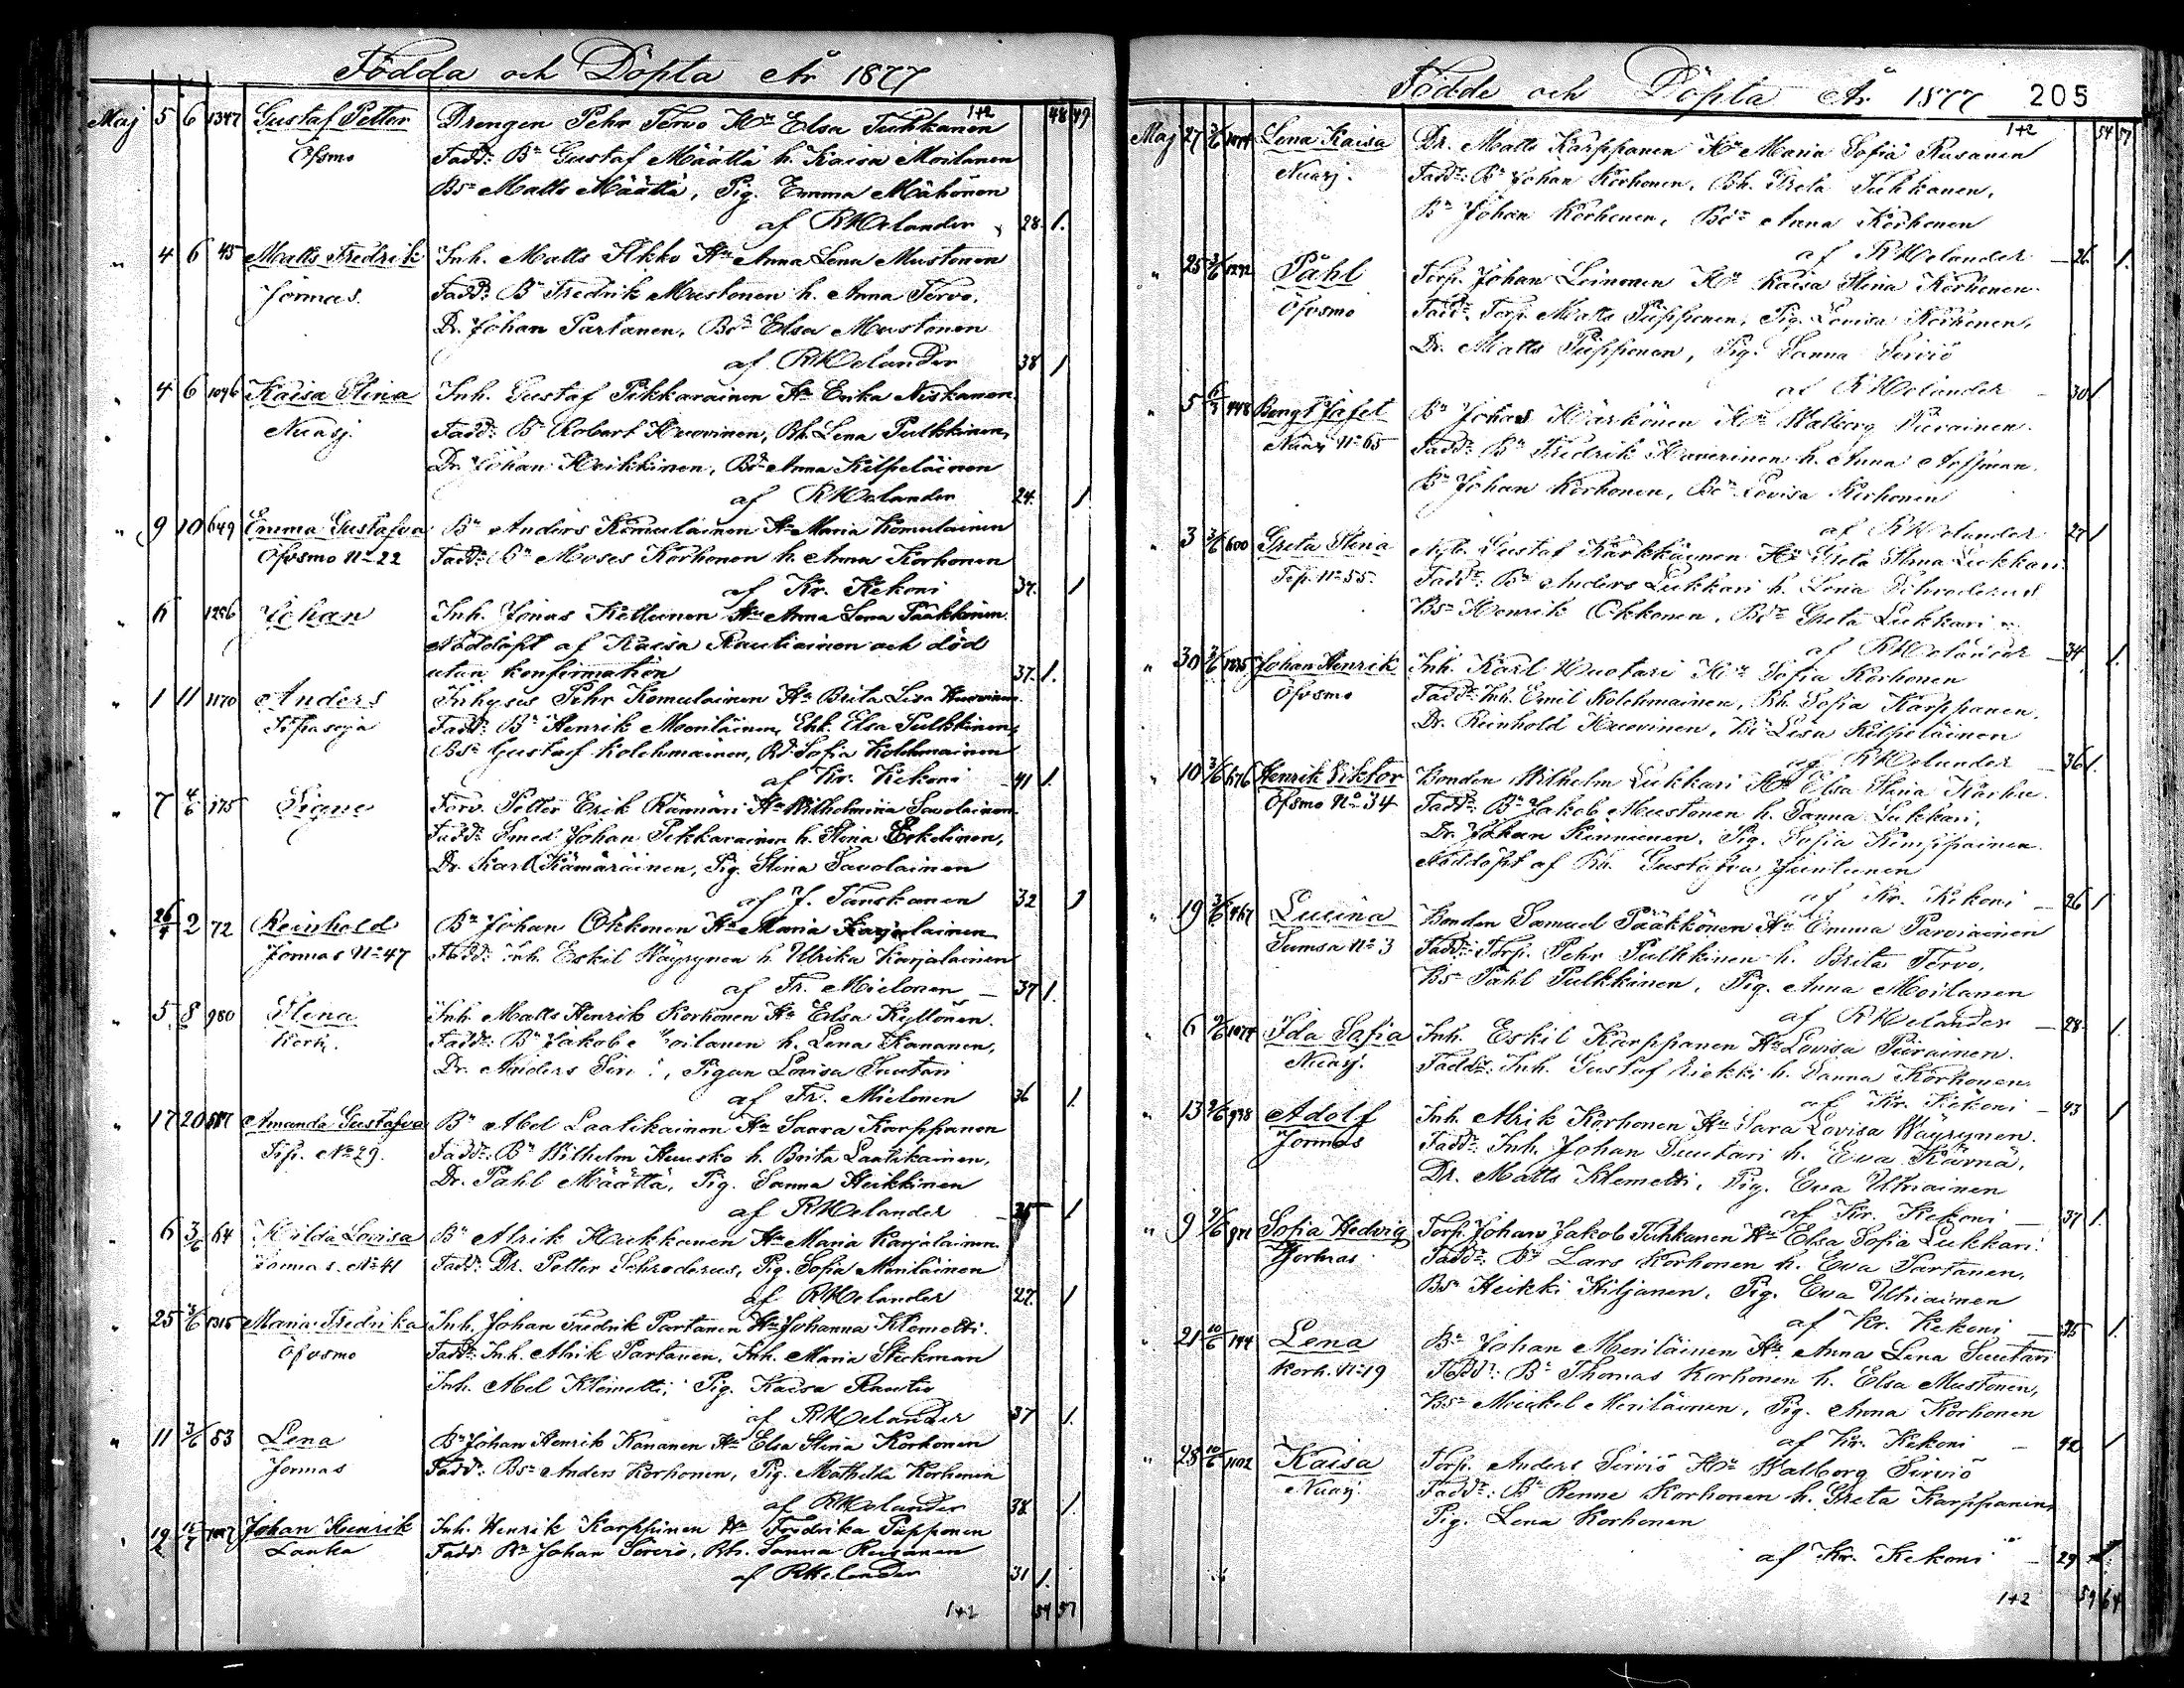 Födda och Döpta År 1877
1+2 48 49
Maj 5 6 1347 Gustaf Petter Drengen Pehr Tervo Hu Elsa Tuhkanen
Öfvsmo Fadd: Bn Gustaf Määttä h. Kaisa Moilanen
Bsn Matts Määttä, Pig. Emma Mähönen
af RHelander 28. 1.
" 4 6 45 Matts Fredrik Inh. Matts Hkko Hu Anna Lena Mustonen
Jormas. Fadd: Bn Fredrik Mustonen h. Anna Tervo,
Dr. Johan Partanen, Bdr Elsa Mustonen
af RHelander 38 1
" 4 6 1096 Kaisa Stina Inh. Gustaf Pikkarainen Hu Erika Niskanen
Nuasj. Fadd: Bn Robert Huovinen, Bh. Lena Pulkkinen,
Dr. Johan Heikkinen, Bdr Anna Kilpeläinen
af RHelander 24. 1
" 9 10 649 Emma Gustafva Bn Anders Komulainen Hu Maria Komulainen
Öfvsmo No 22 Fadd: Bn Moses Korhonen h. Anna Korhonen
af Kr. Kekoni 37. 1
" 6 1256 Johan Inh. Jonas Kettunen Hu Anna Lena Pääkkönen
Nöddöpt af Kaisa Rautiainen och död
utan konfirmation 37. 1.
" 1 11 1170 Anders Inhyses Pehr Komulainen Hu Brita Lisa Huovinen
Tipasoja Fadd: Bn Henrik Meriläinen, Enk. Elsa Pulkkinen,
Bsn Gustaf Kolehmainen, Bdr Sofia Kolehmainen
af Kr. Kekoni 41 1.
" 7 4/6 175 Signe Torv. Petter Erik Rännäri Hu Wilhelmina Savolainen
Fadd: Smed Johan Pikkarainen h. Stina Eskelinen,
Dr. Karl Kämäräinen, Pig. Stina Savolainen
af J. Tanskanen 32 1
" 26/4 2 72 Reinhold Bn Johan Okkonen Hu Maria Karjalainen
Jormas No 47 Fadd: Inh. Eskil Wäyrynen h. Ulrika Karjalainen
af Fr. Mielonen 37 1.
" 5 8 980 Stina Inh. Matts Henrik Korhonen Hu Elsa Kyllönen.
Korh. Fadd: Bn Jakob Moilanen h. Lena Kananen,
Dr. Anders, Pigan Lovisa Suutari
af Fr. Mielonen 36 1.
" 17 20 587 Amanda Gustafva Bn Abel Laatikainen Hu Saara Karppanen
Tip. No 29. Fadd: Bn Wilhelm Huusko h. Brita Laatikainen,
Dr. Påhl Määttä, Pig. Sanna Heikkinen
af RHelander 35 1
" 6 3/6 64 Hilda Lovisa Bn Alrik Heikkonen Hu Maria Karjalainen
Jormas. No 41 Fadd: Dr. Petter Schroderus, Pig. Sofia Meriläinen
af RHelander 27. 1
" 25 3/6 1315 Maria Fredrika Inh. Johan Fredrik Partanen Hu Johanna Klemetti.
Öfvsmo Fadd: Inh. Alrik Partanen, Inh. Maria Stickman
Inh. Abel Klemetti, Pig. Kaisa Rautio
af RHelander 37 1.
" 11 3/6 53 Lena Bn Johan Henrik Kananen Hu Elsa Stina Korhonen
Jormas Fadd: Bsn Anders Korhonen, Pig. Mathilda Korhonen
af RHelander 38 1.
" 19 1007 Johan Henrik Inh. Henrik Karppinen Hu Fredrika Piipponen
Lanka Fadd Bn Johan Sirviö, Bh. Sanna Rusanen
af RHelander 31 1.
1+2 54 57
Födde och Döpta År 1877 205
1+2 54 57
Maj 27 3/6 1044 Lena Kaisa Dr. Matts Karppanen Hu Maria Sofia Rusanen
Nuasj. Fadd: Bn Johan Korhonen, Bh. Greta Tuhkanen,
Bn Johan Korhonen, Bdr Anna Korhonen
af RHelander 26 1.
" 25 3/6 1292 Påhl Torp. Johan Leinonen Hu Kaisa Stina Korhonen
Öfvsmo Fadd: Torp. Matts Piipponen, Pig. Lovisa Korhonen,
Dr. Matts Piipponen, Pig. Sanna Sirviö
af RHelander 30 1
" 5 6/5 448 Bengt Jafet Bn Johan Härkönen Hu Walborg Piirainen
Nuasj No 65 Fadd: Bn Fredrik Haverinen h. Anna Assman.
Bn Johan Korhonen, Bdr Lovisa Korhonen
af RHelander 27 1
" 3 3/6 600 Greta Stina Nyb. Gustaf Kärkkäinen Hu Greta Stina Lukkari
Tip. No 55. Fadd: Bn Anders Lukkari h. Lena Schroderus
Bsn Henrik Okkonen, Bdr Greta Lukkari
af RHelander 34 1.
" 30 3/6 1335 Johan Henrik Inh. Karl Huotari Hu Sofia Korhonen
Öfvsmo Fadd: Inh. Emil Kolehmainen, Bh. Sofia Karppanen,
Dr. Reinhold Huovinen, Bdr Lisa Kilpeläinen
af RHelander 36 1.
" 10 3/6 676 Henrik Viktor Bonden Wilhelm Lukkari Hu Elsa Stina Karhu
Öfsmo No 34 Fadd: Bn Jakob Mustonen h. Sanna Lukkari,
Dr. Johan Kinnunen, Pig. Sofia Kemppainen
Nöddöpt af Bh. Gustafva Juntunen
af Kr. Kekoni 26 1
" 19 3/6 467 Lucina Bonden Samuel Pääkkönen Hu Emma Parviainen
Sumsa No 3 Fadd: Torp. Pehr Pulkkinen h. Brita Tervo,
Bsn Påhl Pulkkinen, Pig. Anna Moilanen
af RHelander 28 1.
" 6 9/6 1077 Ida Sofia Inh. Eskil Karppanen Hu Lovisa Piirainen.
Nuasj. Fadd: Inh. Gustaf Kiekki h. Sanna Korhonen
af Kr. Kekoni 43 1
" 13 9/6 978 Adolf Inh. Alrik Korhonen Hu Sara Lovisa Wäyrynen.
Jormas Fadd: Inh. Johan Suutari h. Eva Kärnä,
Dr. Matts Klemetti, Pig. Eva Utriainen
af Kr. Kekoni 37 1.
" 9 9/6 971 Sofia Hedvig Torp. Johan Jakob Tuhkanen Hu Elsa Sofia Lukkari.
Jormas Fadd: Bn Lars Korhonen h. Eva Partanen,
Bsn Heikki Kiljanen, Pig. Eva Utriainen
af Kr. Kekoni 35 1.
" 21 10/6 144 Lena Bn Johan Meriläinen Hu Anna Lena Suutari
Korh. No 19 Fadd: Bn Thomas Korhonen h. Elsa Mustonen,
Bsn Mickel Meriläinen, Pig. Anna Korhonen
af Kr. Kekoni 42 1
" 28 10/6 1102 Kaisa Torp. Anders Sirviö Hu Walborg Sirviö
Nuasj. Fadd: Bn Renne Korhonen h. Greta Karppanen,
Pig. Lena Korhonen
af Kr. Kekoni 29 1
1+2 59 64